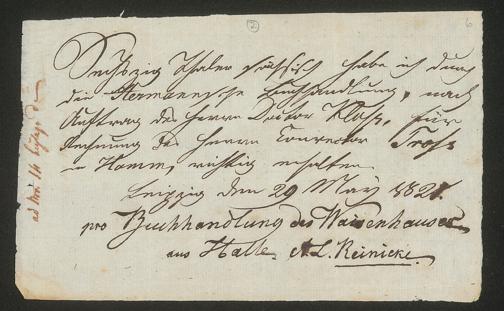 Sechszig Thaler sächsisch habe ich durch
die Hermannsche Buchhandlung, nach
Auftrag des Herrn Doctor Kloß, für
Rechnung des Herrn Conrector Troß
in Hamm, richtig erhalten.
Leipzig den 29 May 1821.
pro Buchhandlung des Waisenhauses
aus Halle. L. Reinicke.
ad